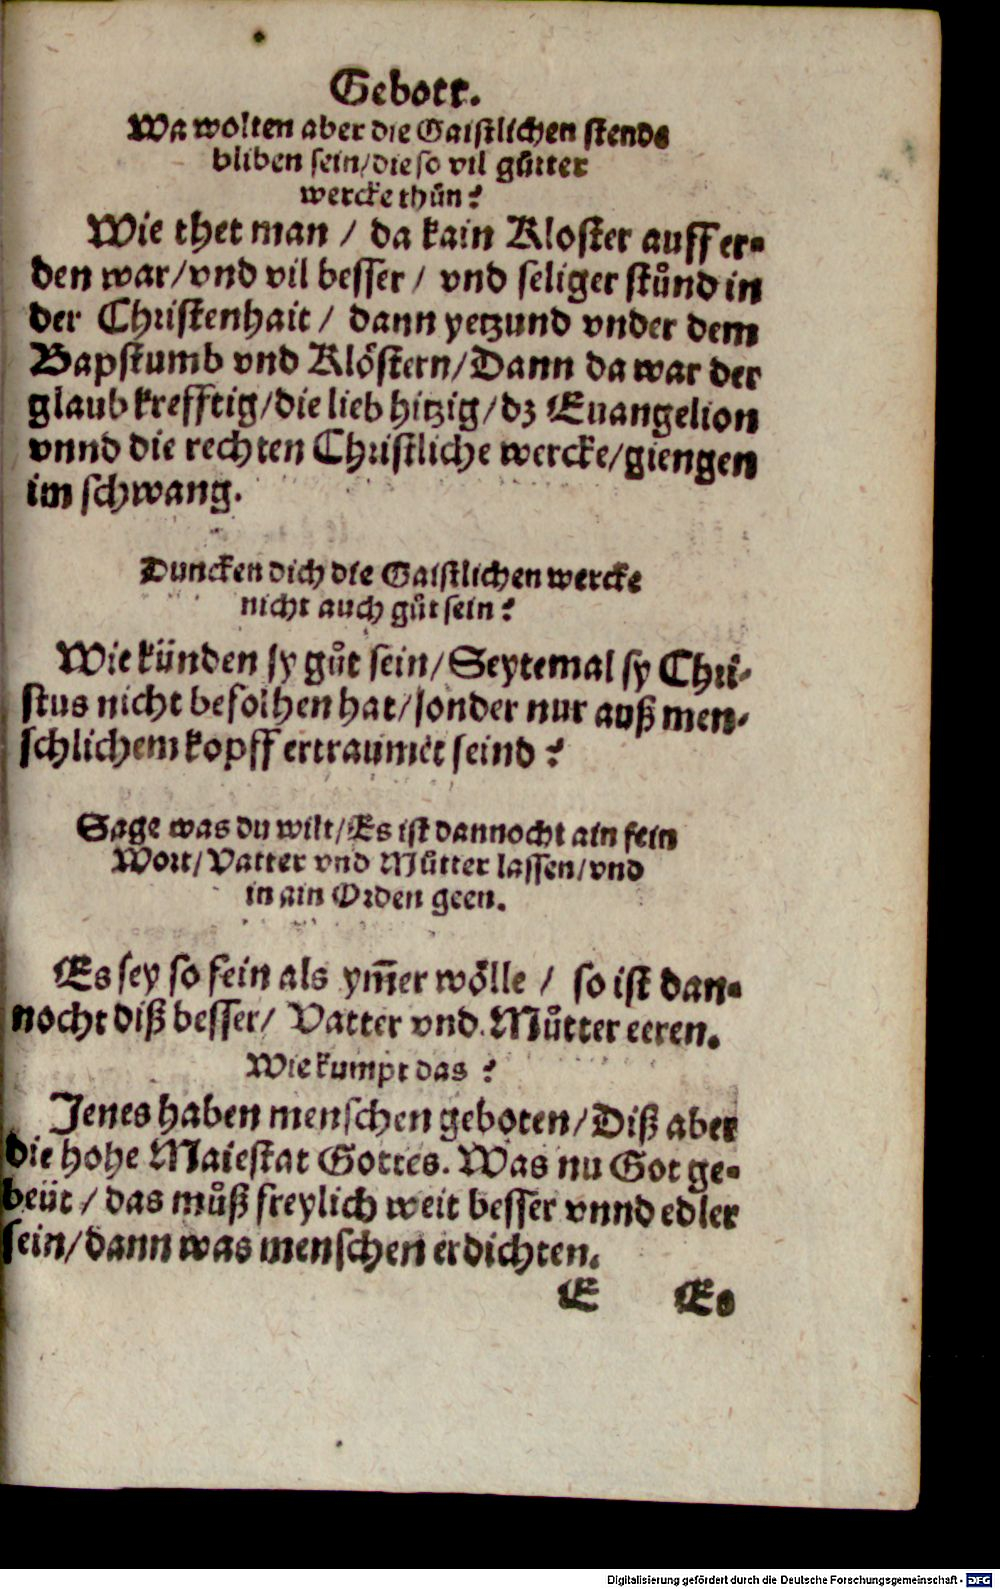 Gebott.
Wa wolten aber die Gaistlichen stende
bliben sein/die so vil gůtter
wercke thůn?
Wie thet man / da kain Kloster auff er-
den war/vnd vil besser / vnd seliger stůnd in
der Christenhait / dann yetzund vnder dem
Bapstumb vnd Klöstern/Dann da war der
glaub krefftig/die lieb hitzig/dz Euangelion
vnnd die rechten Christliche wercke/giengen
im schwang.
Duncken dich die Gaistlichen wercke
nicht auch gůt sein?
Wie künden sy gůt sein/Seytemal sy Chri-
stus nicht befolhen hat/sonder nur auß men-
schlichem kopff ertraumet seind?
Sage was du wilt/Es ist dannocht ain fein
Wort/Vatter vnd Můtter lassen/vnd
in ain Orden geen.
Es sey so fein als ym̄er wölle / so ist dan-
nocht diß besser/ Vatter vnd Můtter eeren.
Wie kumpt das?
Jenes haben menschen geboten/Diß aber
die hohe Maiestat Gottes. Was nu Got ge-
beüt / das můß freylich weit besser vnnd edler
sein/dann was menschen erdichten.
E Es
Digitalisierung gefördert durch die Deutsche Forschungsgemeinschaft - DFG